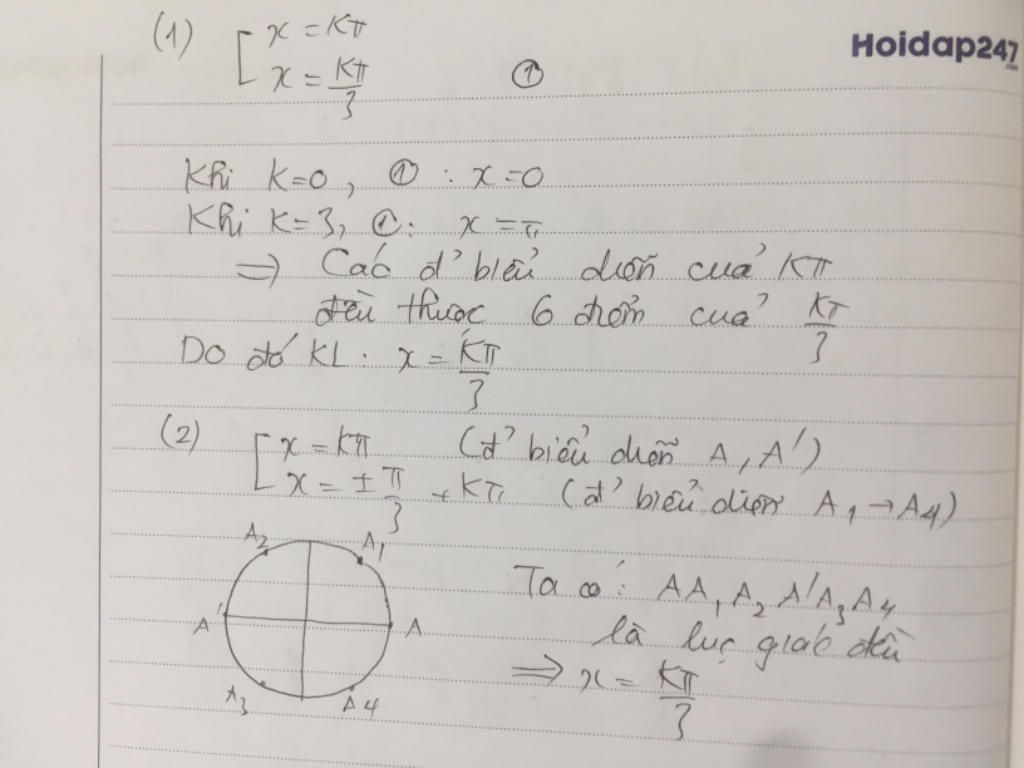 (1) [ x = kπ
x = kπ/3 ①
Hoidap247
.com
Khi k=0, ① : x=0
Khi k=3, ①: x=π
=> Các đ' biểu diễn của kπ
đều thuộc 6 điểm của kπ/3
Do đó KL: x = kπ/3
(2) [ x = kπ (đ' biểu diễn A, A')
x = ±π/3 + kπ (đ' biểu diễn A1 → A4)
A2 A1
A' A
A3 A4
Ta có: AA1A2A'A3A4
là lục giác đều
=> x = kπ/3